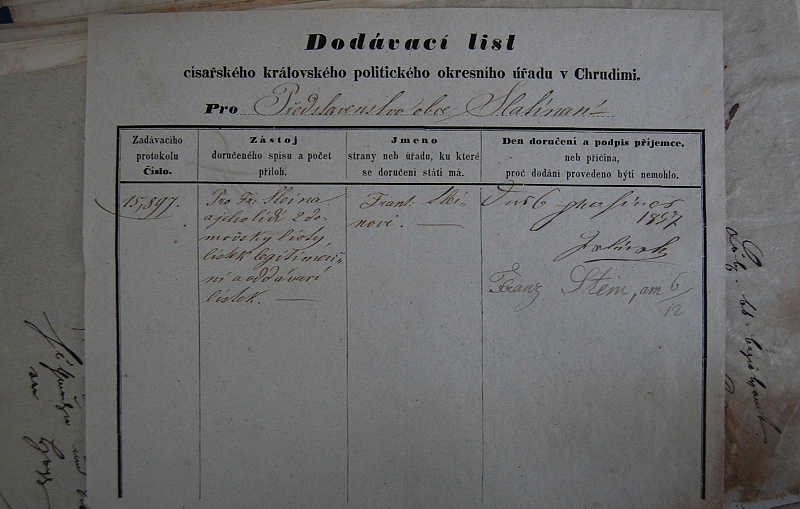 Dodávací list
cisařského královského politického okresního úřadu v Chrudimi.
Pro Představenstvo obce Slatinan
Zadávacího
protokolu
Číslo.
Zástoj
doručeného spisu a počet
příloh.
Jmeno
strany neb úřadu, ku které
se doručení státi má.
Den doručení a podpis příjemce,
neb příčina,
proč dodání provedeno býti nemohlo.
15,897.
Pro Fr: Steina
a jeho lidi 2 do-
movsky listy,
lístek legitimací-
ní a oddávací
lístek.
Frant. Stei-
novi.
Dne 6
1857
Franz Stein, am 6/12